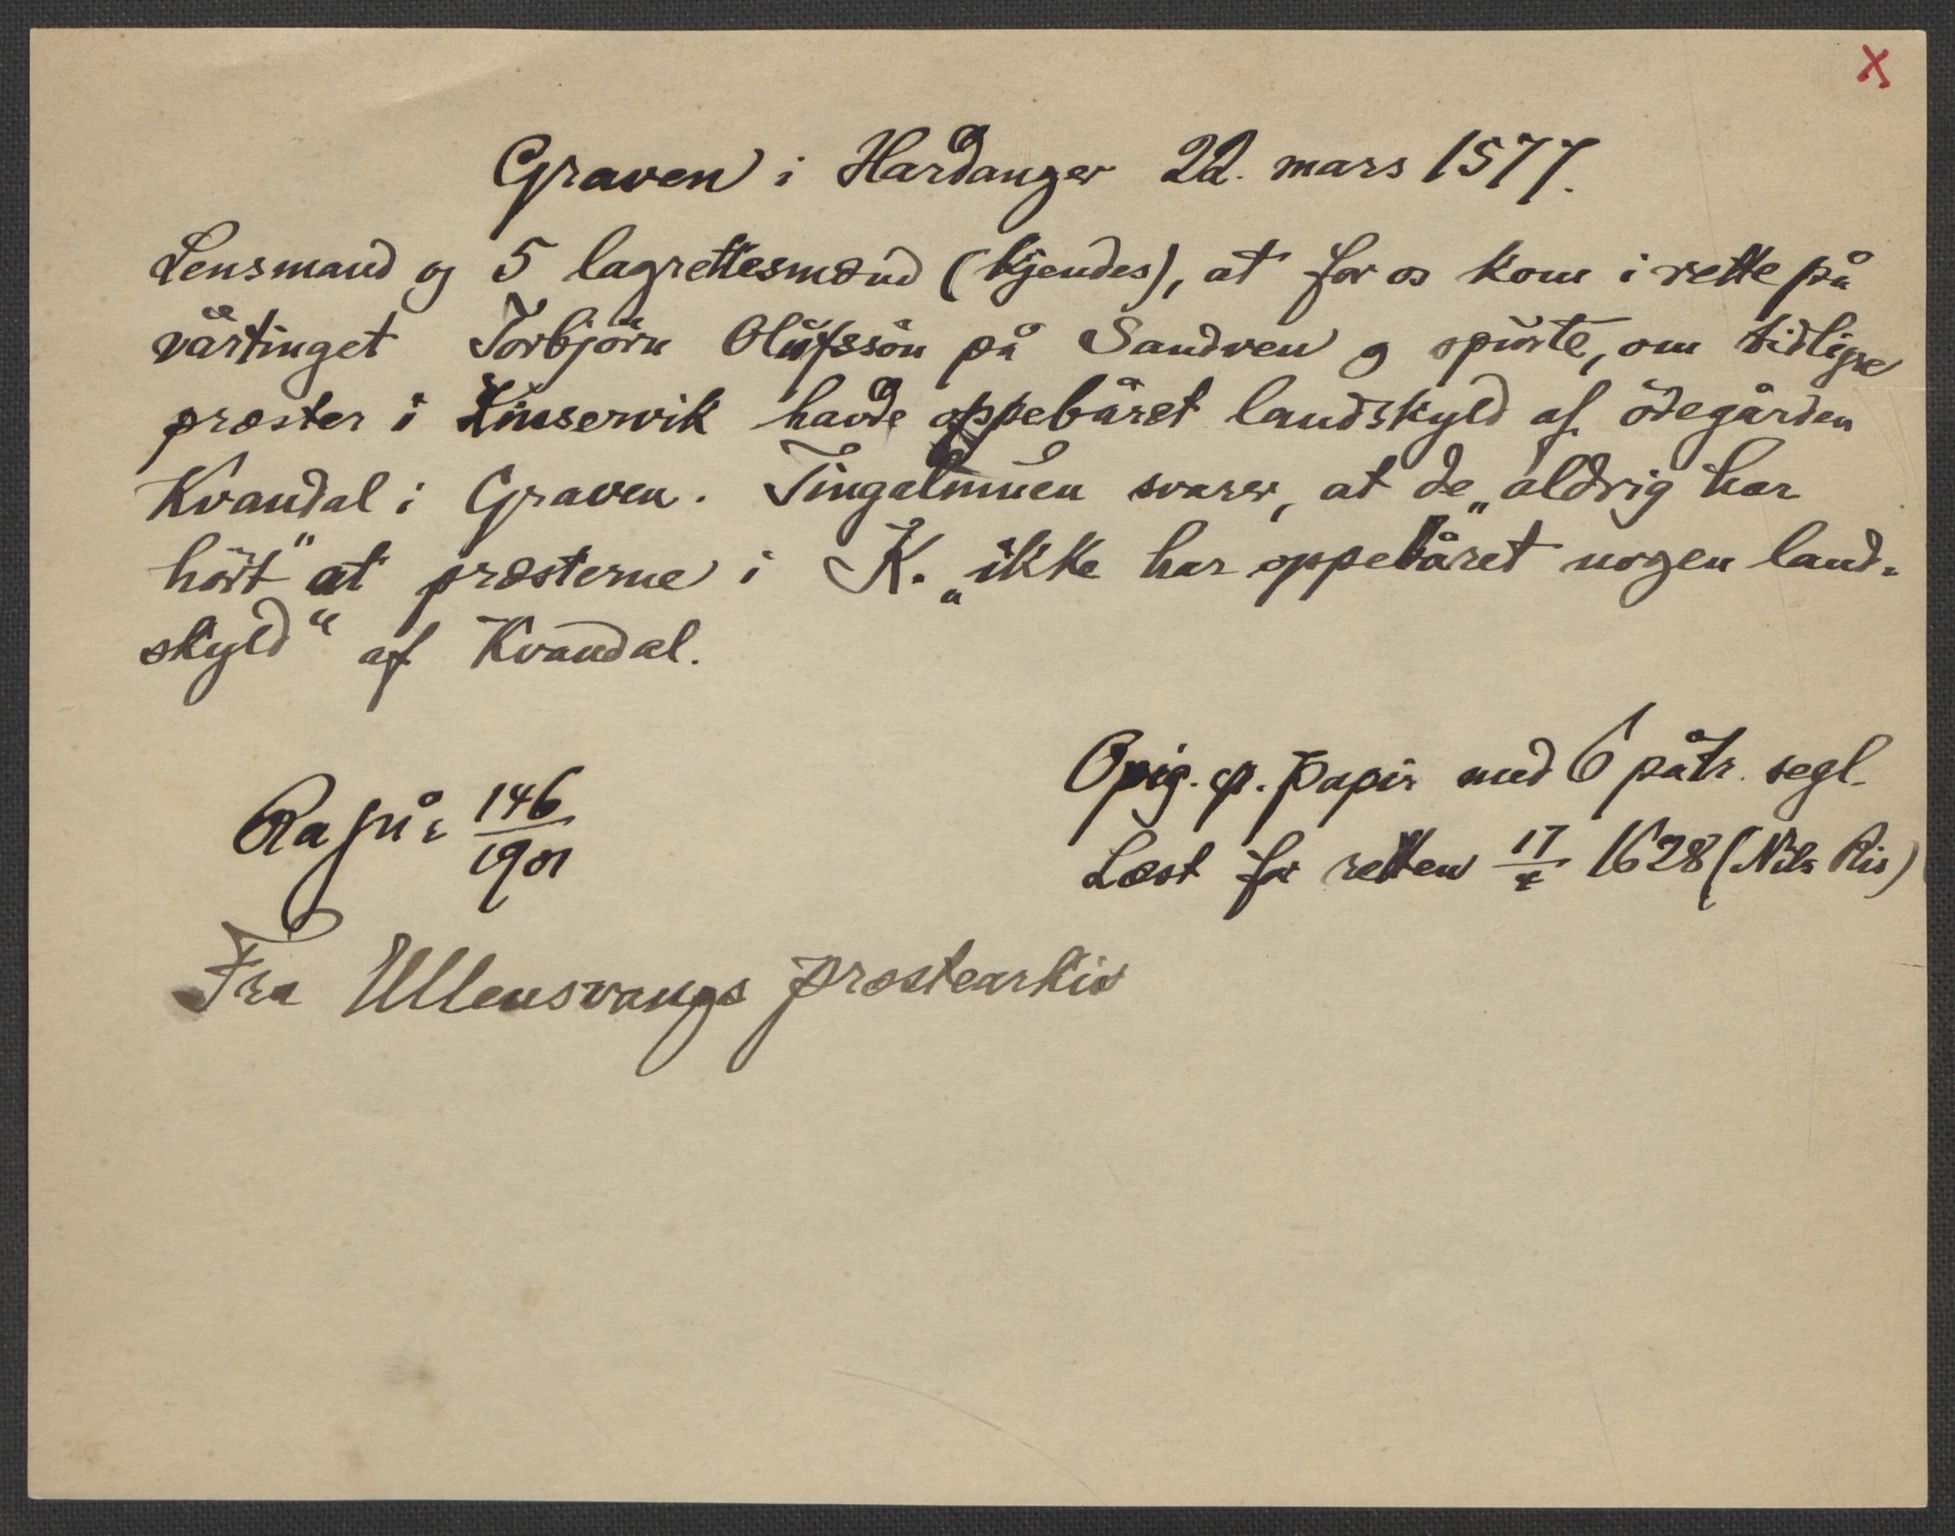 X
Graven i Hardanger 22. mars 1577.
Lensmand og 5 lagrettesmænd (kjendes), at for os kom i rette på
vårtinget Torbjørn Olufssön på Sandven og spurte, om tidligre
præster i Kinservik havde oppebåret landskyld af ödegården
Kvandal i Graven. Tingalmuen svarer, at de „aldrig har
hört" at præsterne i K. „ikke har oppebåret nogen land-
skyld" af Kvandal.
Orig. p. papir med 6 påtr. segl.
146
1901
Læst for retten 17 1628 (Nils Ris)
Fra Ullensvangs præstearkiv